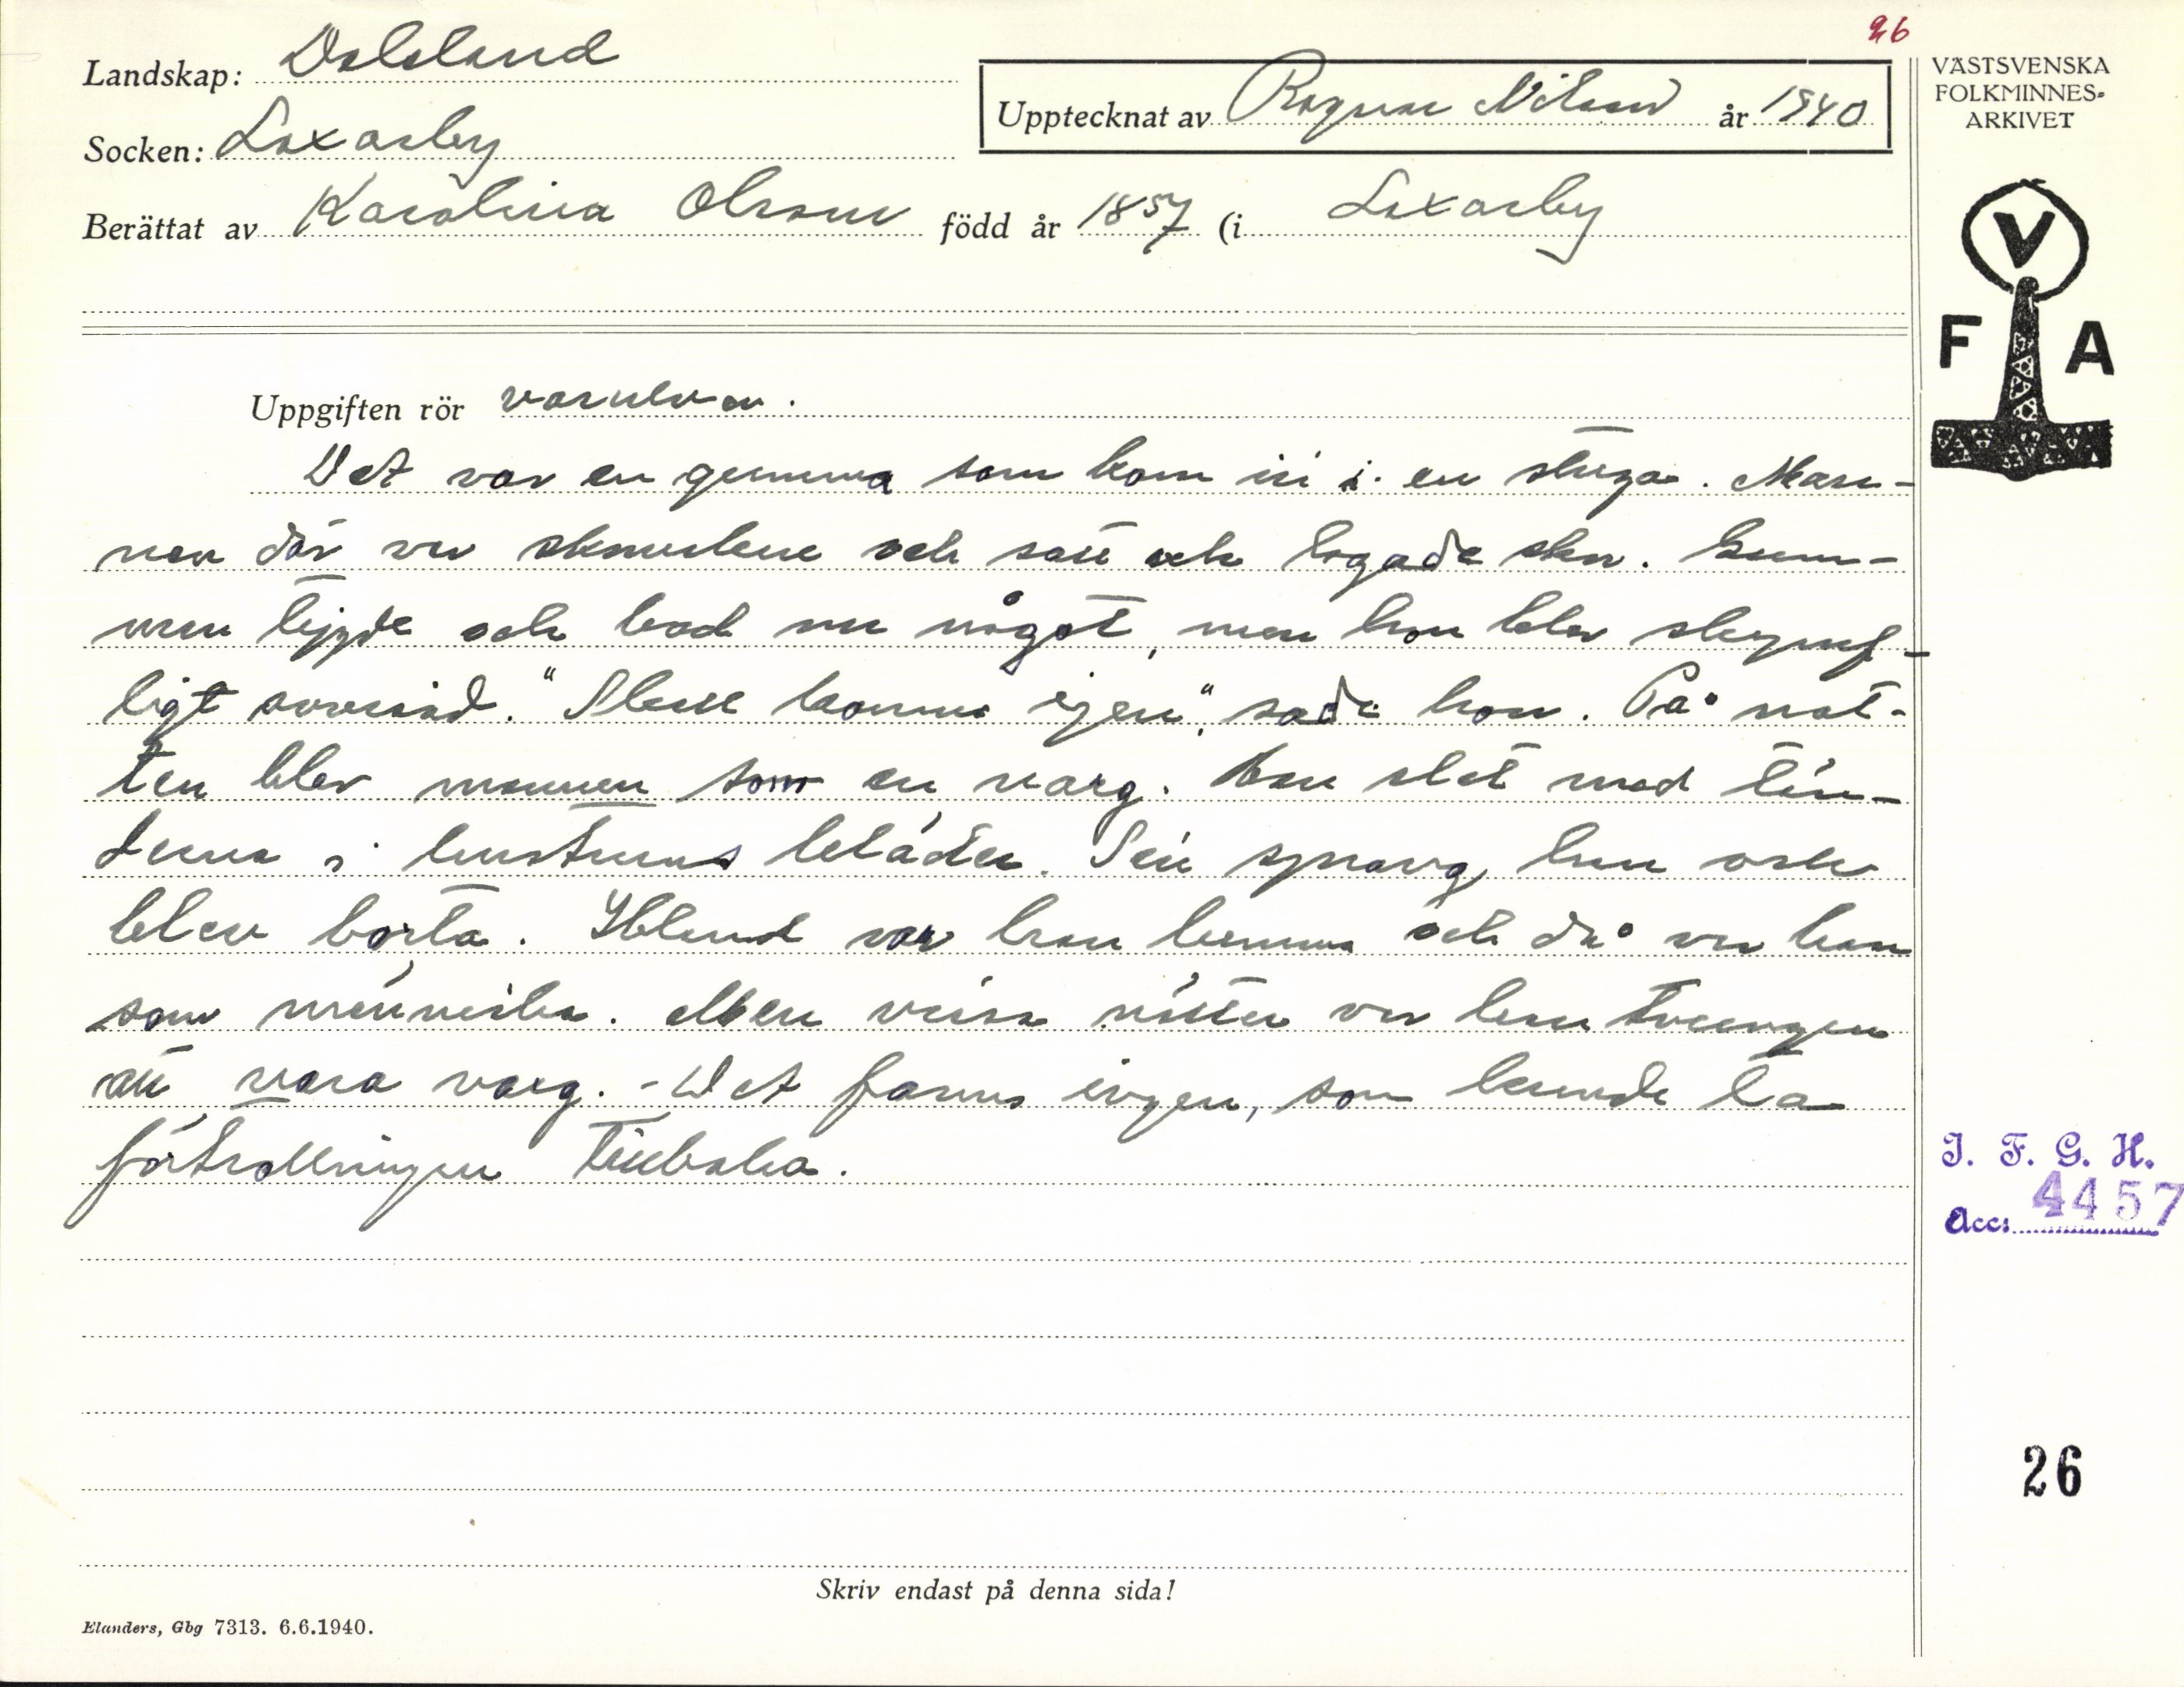 26
Landskap: Dalsland
Upptecknat av Ragnar Nilsson år 1940
VÄSTSVENSKA
FOLKMINNES-
ARKIVET
Socken: Laxarby
Berättat av Karolina Olsson född år 1857 (i Laxarby
V
F A
Uppgiften rör varulven.
Det var en gumma som kom in i en stuga. Man-
nen där var skomakare och satt och lagade skor. Gum-
man tiggde och bad om något, men hon blev skymf-
ligt avvisad. "Skall komma igen", sade hon. På nat-
ten blev mannen som en varg. Han slet med tän-
derna i hustruns kläder. Sen sprang han och
blev borta. Ibland var han hemma och då var han
som människa. Men vissa nätter var han tvungen
att vara varg. - Det fanns ingen, som kunde ta
förtrollningen tillbaka.
I. F. G. H.
Acc: 4457
26
Skriv endast på denna sida!
Elanders, Gbg 7313. 6.6.1940.